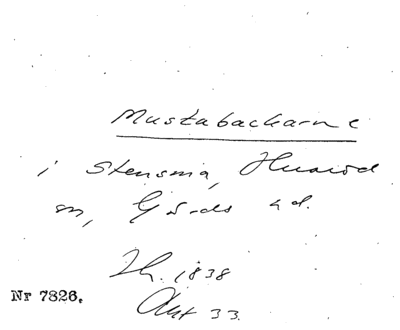 Mustabackarne
i Stensma, Huaröd
sn, Gärds hd.
Th. 1838
Akt 33.
Nr 7826.